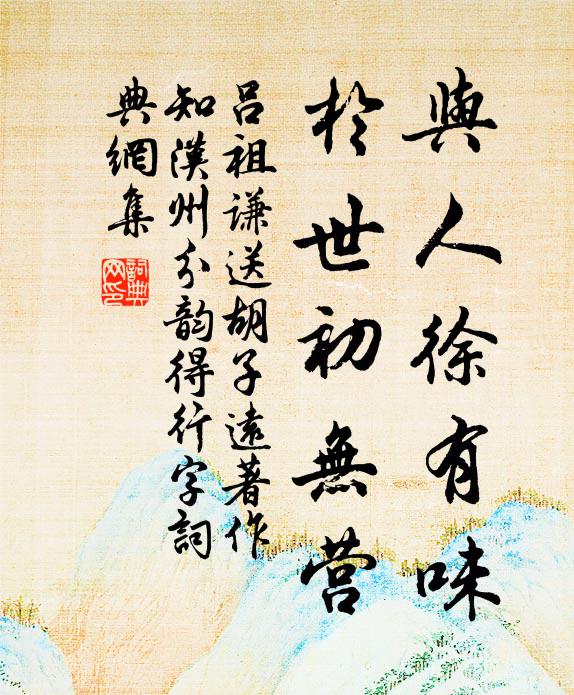 與人徐有味
於世初無营
吕祖谦送胡子遠著作
知漢州分韵得行字詞
典網集
詞典網印